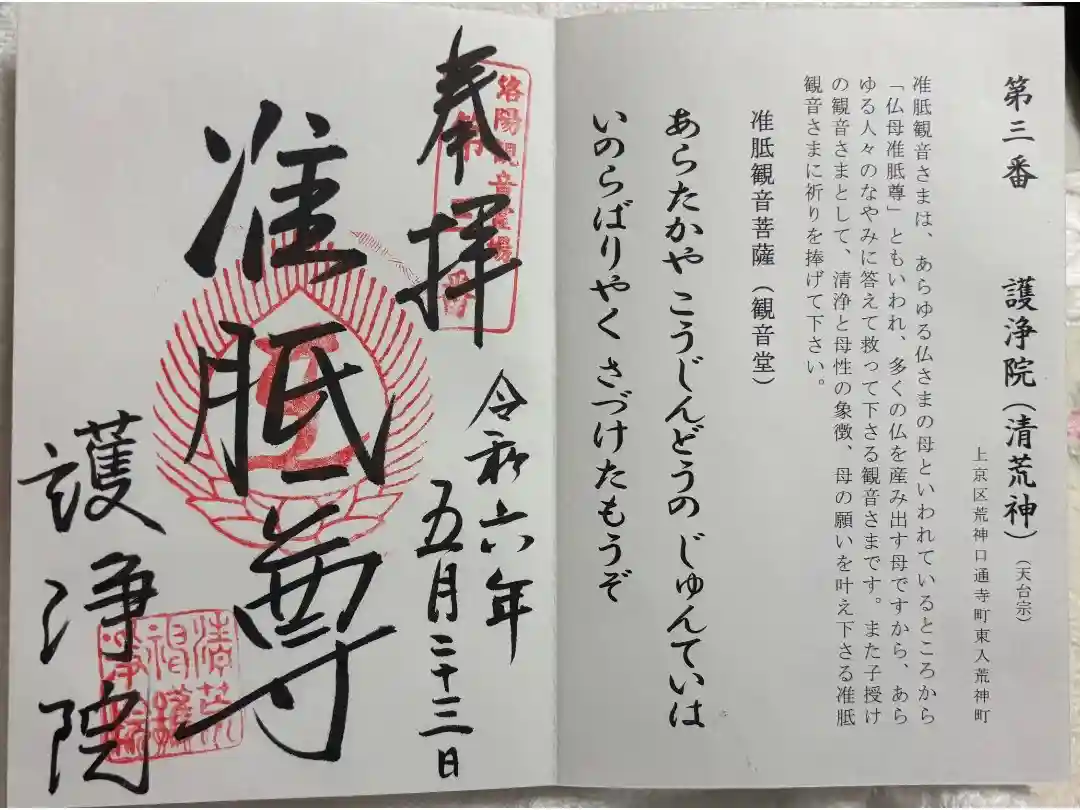 第三番 護浄院(清荒神)(天台宗)
上京区荒神口通寺町東入荒神町
准胝観音さまは、あらゆる仏さまの母といわれているところから
「仏母准胝尊」ともいわれ、多くの仏を産み出す母ですから、あら
ゆる人々のなやみに答えて救って下さる観音さまです。また子授け
の観音さまとして、清浄と母性の象徴、母の願いを叶え下さる准胝
観音さまに祈りを捧げて下さい。
准胝観音菩薩(観音堂)
あらたかや こうじんどうの じゅんていは
いのらばりやく さづけたもうぞ
洛陽観音霊場
第三番
奉拝
令和六年
五月二十三日
准胝尊
護浄院